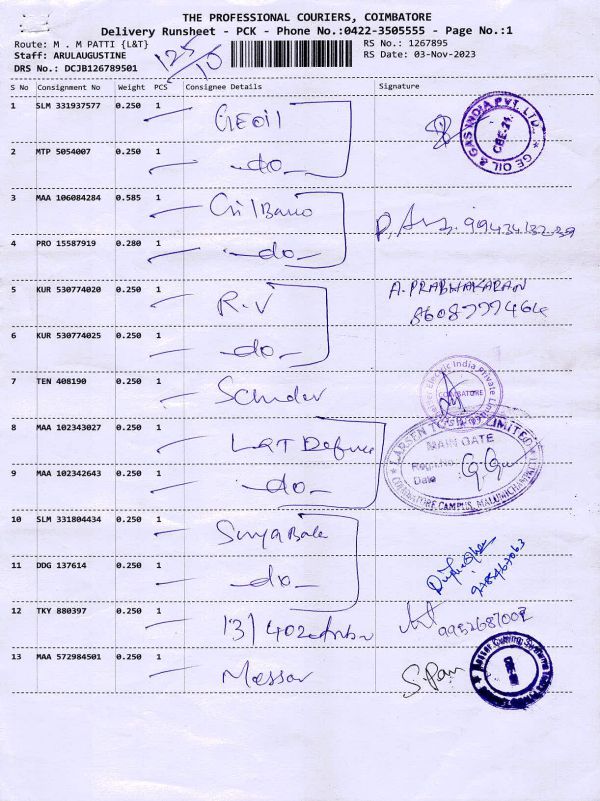 THE PROFESSIONAL COURIERS, COIMBATORE
Delivery Runsheet - PCK - Phone No.:0422-3505555 - Page No.:1
Route: M . M PATTI {L&T}
RS No.: 1267895
Staff: ARULAUGUSTINE
RS Date: 03-Nov-2023
DRS No.: DCJB126789501
125/10
S No Consignment No Weight PCS Consignee Details Signature
1 SLM 331937577 0.250 1 GEOil
GE OIL & GAS INDIA PVT. LTD. CBE-21.
2 MTP 5054007 0.250 1 -do-
3 MAA 106084284 0.585 1
4 PRO 15587919 0.280 1 -do-
5 KUR 530774020 0.250 1 R.V A. PRABHAKARAN
8608777464
6 KUR 530774025 0.250 1 -do-
7 TEN 408190 0.250 1
Electric India Private COIMBATORE
8 MAA 102343027 0.250 1 L&T Defence
LARSEN TOUBRO LIMITED
MAIN GATE
Regn.No
Date
COIMBATORE CAMPUS, MALUMICHAMPATTI
9 MAA 102342643 0.250 1 -do-
10 SLM 331804434 0.250 1 SuryaBala
11 DDG 137614 0.250 1 -do-
12 TKY 880397 0.250 1 13/402
13 MAA 572984501 0.250 1 Messer
Messer Cutting Systems